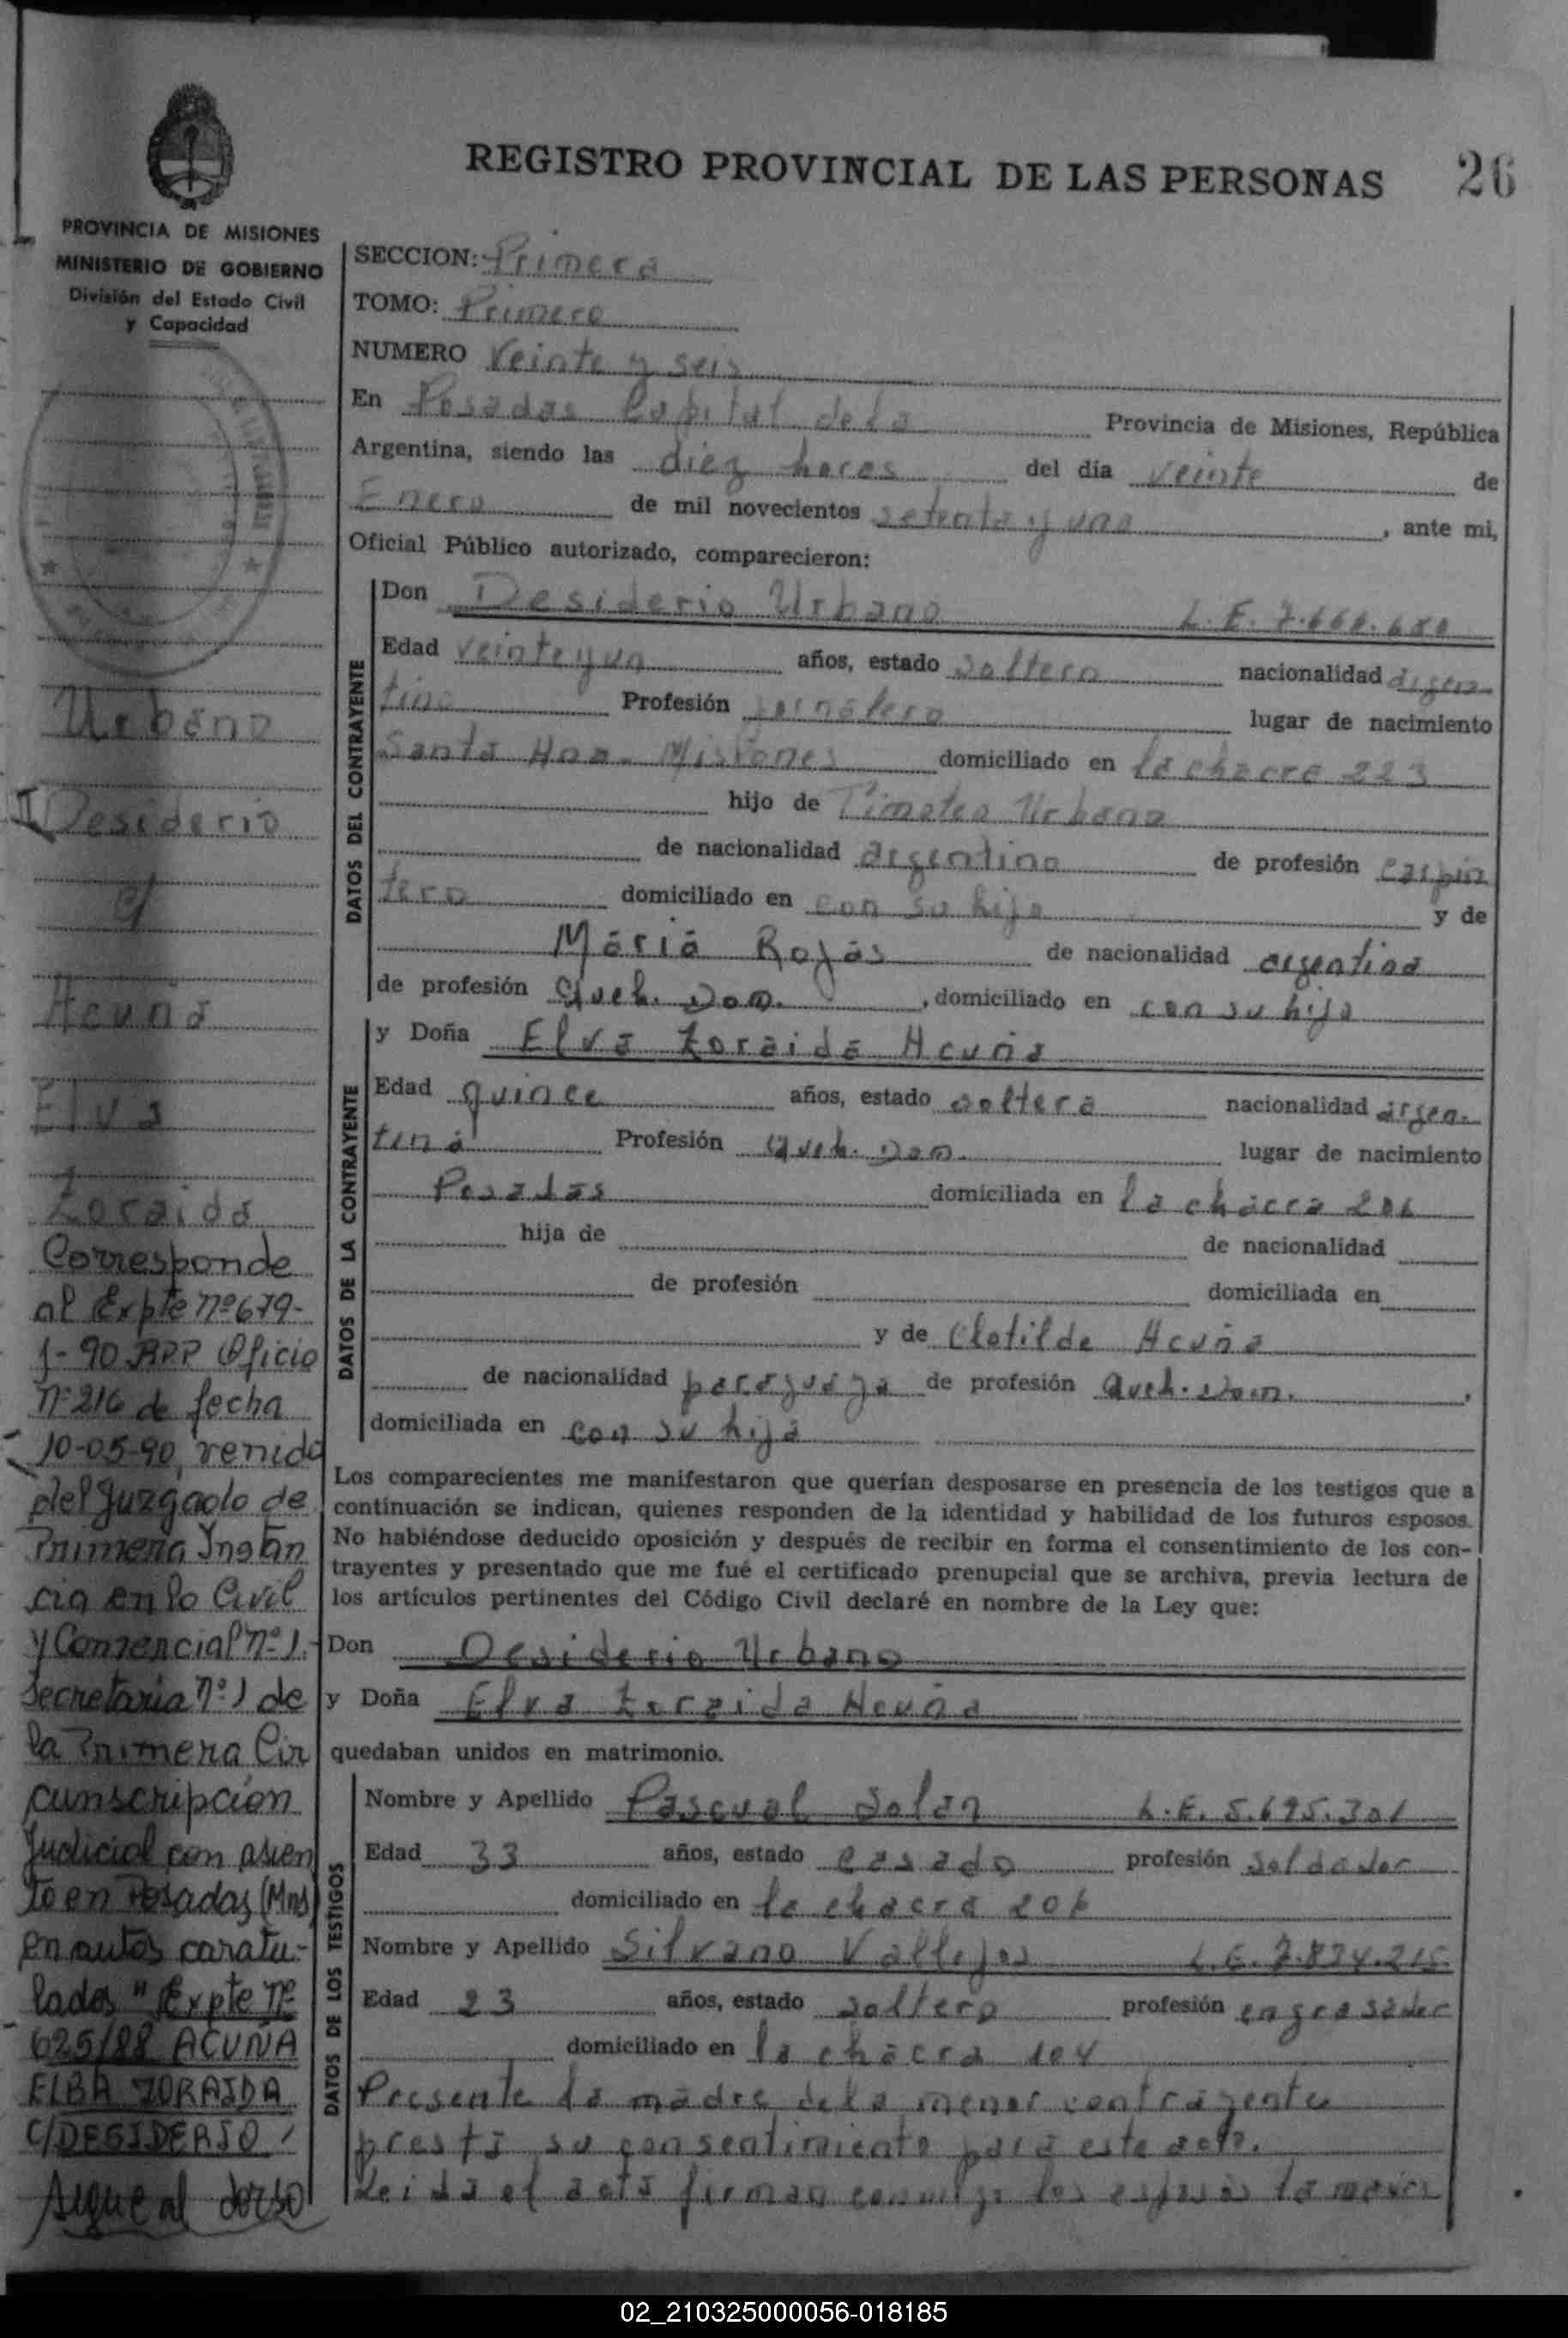 REGISTRO PROVINCIAL DE LAS PERSONAS 26
PROVINCIA DE MISIONES
MINISTERIO DE GOBIERNO
División del Estado Civil
y Capacidad
Urbano
Desiderio
y
Acuña
Elva
Zoraida
Corresponde
al Expte nº 679-
J-90 RPP Oficio
nº 216 de fecha
10-05-90, venido
del Juzgado de
Primera Instan
cia en lo Civil
y Comercial nº 1.-
Secretaria nº 1 de
la Primera Cir
cunscripción
Judicial con asien
to en Posadas (Mns)
en autos caratu-
lados "Expte Nº
625/88 ACUÑA
ELBA ZORAIDA
C/DESIDERIO /
sigue al dorso
SECCION: Primera
TOMO: Primero
NUMERO Veinte y seis
En Posadas Capital de la Provincia de Misiones, República
Argentina, siendo las diez horas del día veinte de
Enero de mil novecientos setenta y uno, ante mi,
Oficial Público autorizado, comparecieron:
DATOS DEL CONTRAYENTE
Don Desiderio Urbano L. E. 7.666.680
Edad veinte y un años, estado soltero nacionalidad argen-
tino Profesión jornalero lugar de nacimiento
Santa Ana - Misiones domiciliado en la chacra 223
hijo de Timoteo Urbano
de nacionalidad argentino de profesión carpin
tero domiciliado en con su hijo y de
María Rojas de nacionalidad argentina
de profesión Queh. Dom., domiciliado en con su hijo
DATOS DE LA CONTRAYENTE
y Doña Elva Zoraida Acuña
Edad quince años, estado soltera nacionalidad argen-
tina Profesión Queh. Dom. lugar de nacimiento
Posadas domiciliada en la chacra 206
hija de de nacionalidad
de profesión domiciliada en
y de Clotilde Acuña
de nacionalidad paraguaya de profesión Queh. Dom.,
domiciliada en con su hija
Los comparecientes me manifestaron que querían desposarse en presencia de los testigos que a
continuación se indican, quienes responden de la identidad y habilidad de los futuros esposos.
No habiéndose deducido oposición y después de recibir en forma el consentimiento de los con-
trayentes y presentado que me fué el certificado prenupcial que se archiva, previa lectura de
los artículos pertinentes del Código Civil declaré en nombre de la Ley que:
Don Desiderio Urbano
y Doña Elva Zoraida Acuña
quedaban unidos en matrimonio.
DATOS DE LOS TESTIGOS
Nombre y Apellido Pascual Solan L. E. 5.695.301
Edad 33 años, estado casado profesión Soldador
domiciliado en la chacra 206
Nombre y Apellido Silvano Vallejos L. E. 7.834.215
Edad 23 años, estado soltero profesión engrasador
domiciliado en la chacra 104
Presente la madre de la menor contrayente
presta su consentimiento para este acto.
Leida el acta firman conmigo los esposos la madre
02_210325000056-018185